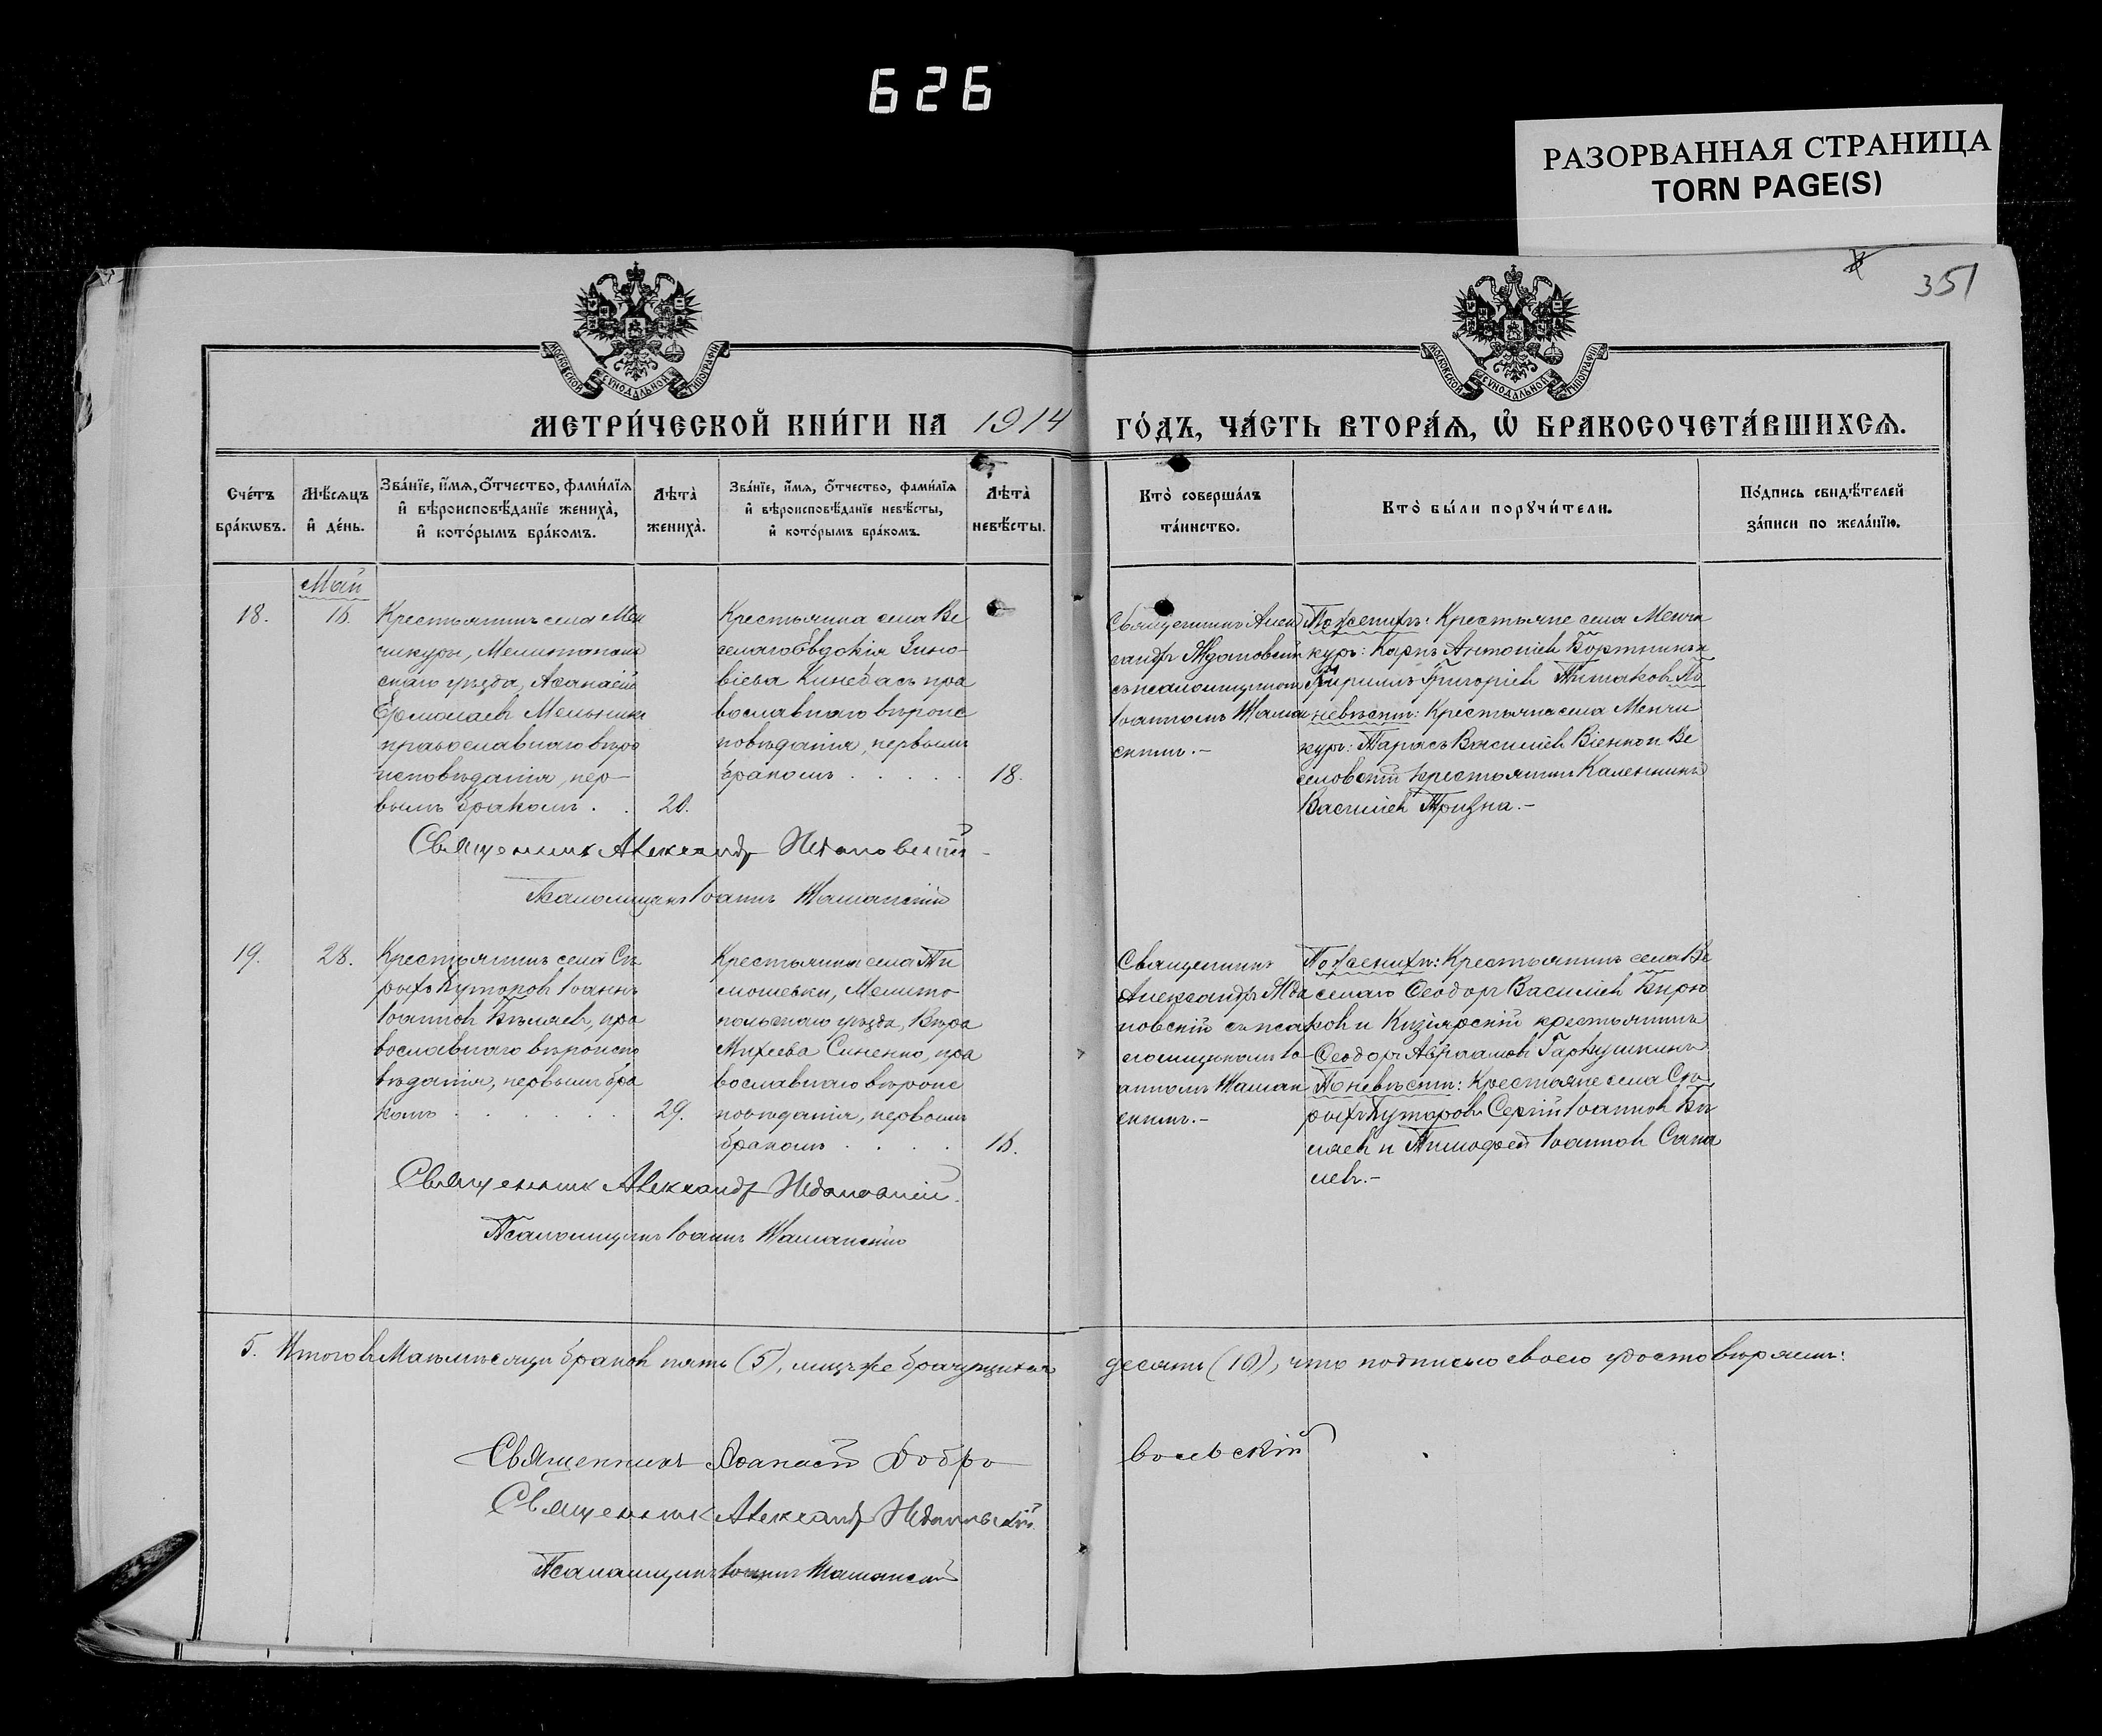 626
РАЗОРВАННАЯ СТРАНИЦА
TORN PAGE(S)
351
МОСКОВСКОЙ СѴНОДАЛЬНОЙ ТИПОГРАФІИ
МОСКОВСКОЙ СѴНОДАЛЬНОЙ ТИПОГРАФІИ
МЕТРИ́ЧЕСКОЙ КНИ́ГИ НА 1914 ГО́ДЪ, ЧА́СТЬ ВТОРА́Ѧ, Ѽ БРАКОСОЧЕТА́ВШИХСѦ.
Сче́тъ
бра́кωвъ.
Мѣ́сяцъ
и҆ де́нь.
Зва́нїе, и҆́мя, ѻ҆́тчество, фами́лїя
и҆ вѣроисповѣ́данїе жениха̀,
и҆ кото́рымъ бра́комъ.
Лѣта̀
жениха̀.
Зва́нїе, и҆́мя, ѻ҆́тчество, фами́лїя
и҆ вѣроисповѣ́данїе невѣ́сты,
и҆ кото́рымъ бра́комъ.
Лѣта̀
невѣ́сты.
Кто̀ соверша́лъ
та́инство.
Кто̀ бы́ли порꙋчи́тели.
По́дпись свидѣ́телей
за́писи по жела́нїю.
Май
18.
16.
Крестьянинъ села Мен
чикуры, Мелитополь
скаго уѣзда, Аѳанасій
Ермолаевъ Мельникъ
православнаго вѣро
исповѣданія, пер-
вымъ бракомъ . .
20.
Крестьянка села Ве
селаго Евдокія Зино-
віева Кинебасъ пра
вославнаго вѣроис
повѣданія, первымъ
бракомъ . . . . .
18.
Священникъ Алек
сандръ Ждановскій
съ псаломщикомъ
Іоанномъ Жаман
скимъ.-
По женихѣ: Крестьяне села Менчи
куръ: Карпъ Антоніевъ Бортникъ и
Кириллъ Григоріевъ Титаковъ По
невѣстѣ: Крестьяне села Менчи
куръ: Тарасъ Василіевъ Віенко и Ве
селовскій крестьянинъ Каленникъ
Василіевъ Тризна.-
Священникъ Александръ Ждановскій
Псаломщикъ Іоаннъ Жаманскій
19.
28.
Крестьянинъ села Сѣ
рыхъ Хуторовъ Іоаннъ
Іоанновъ Бѣляевъ, пра
вославнаго вѣроиспо
вѣданія, первымъ бра
комъ . . . . . .
29.
Крестьянка села Ти
мошевки, Мелито-
польскаго уѣзда, Вѣра
Михеева Синенко, пра
вославнаго вѣроис
повѣданія, первымъ
бракомъ . . . .
16.
Священникъ
Александръ Жда
новскій съ пса
ломщикомъ Іо-
анномъ Жаман
скимъ.-
По женихѣ: Крестьянинъ села Ве
селаго Ѳеодоръ Василіевъ Бирю
ковъ и Кизіярскій крестьянинъ
Ѳеодоръ Авраамовъ Гаркушкинъ
По невѣстѣ: Крестьяне села Сѣ-
рыхъ Хуторовъ Сергій Іоанновъ Бѣ
ляевъ и Тимофей Іоанновъ Сапа
левъ.-
Священникъ Александръ Ждановскій.
Псаломщикъ Іоаннъ Жаманскій
5. Итого въ Маѣ мѣсяцѣ браковъ пять (5), лицъ же брачущихся десять (10), что подписью своею удостовѣряемъ:
Священникъ Аѳанасій Добровольскій
Священникъ Александръ Ждановскій.
Псаломщикъ Іоаннъ Жаманскій